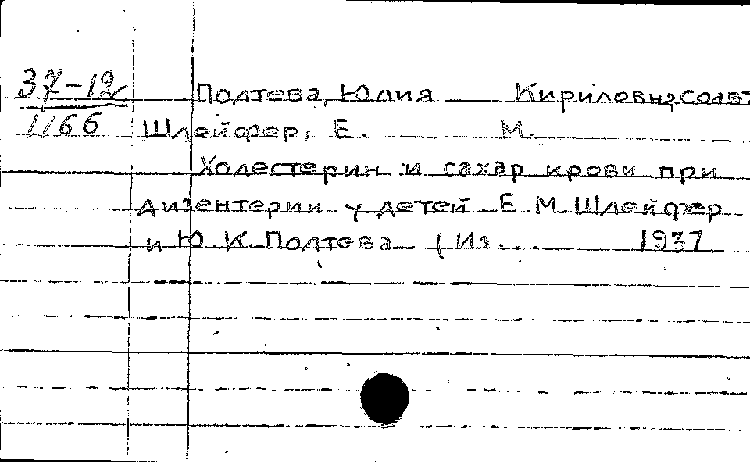 37-12
1166
Полтева, Юлия Кириловна, соавт
Шлейфер, Е. М.
Холестерин и сахар крови при
дизентерии у детей Е М Шлейфер
и Ю К Полтева (Из... 1937